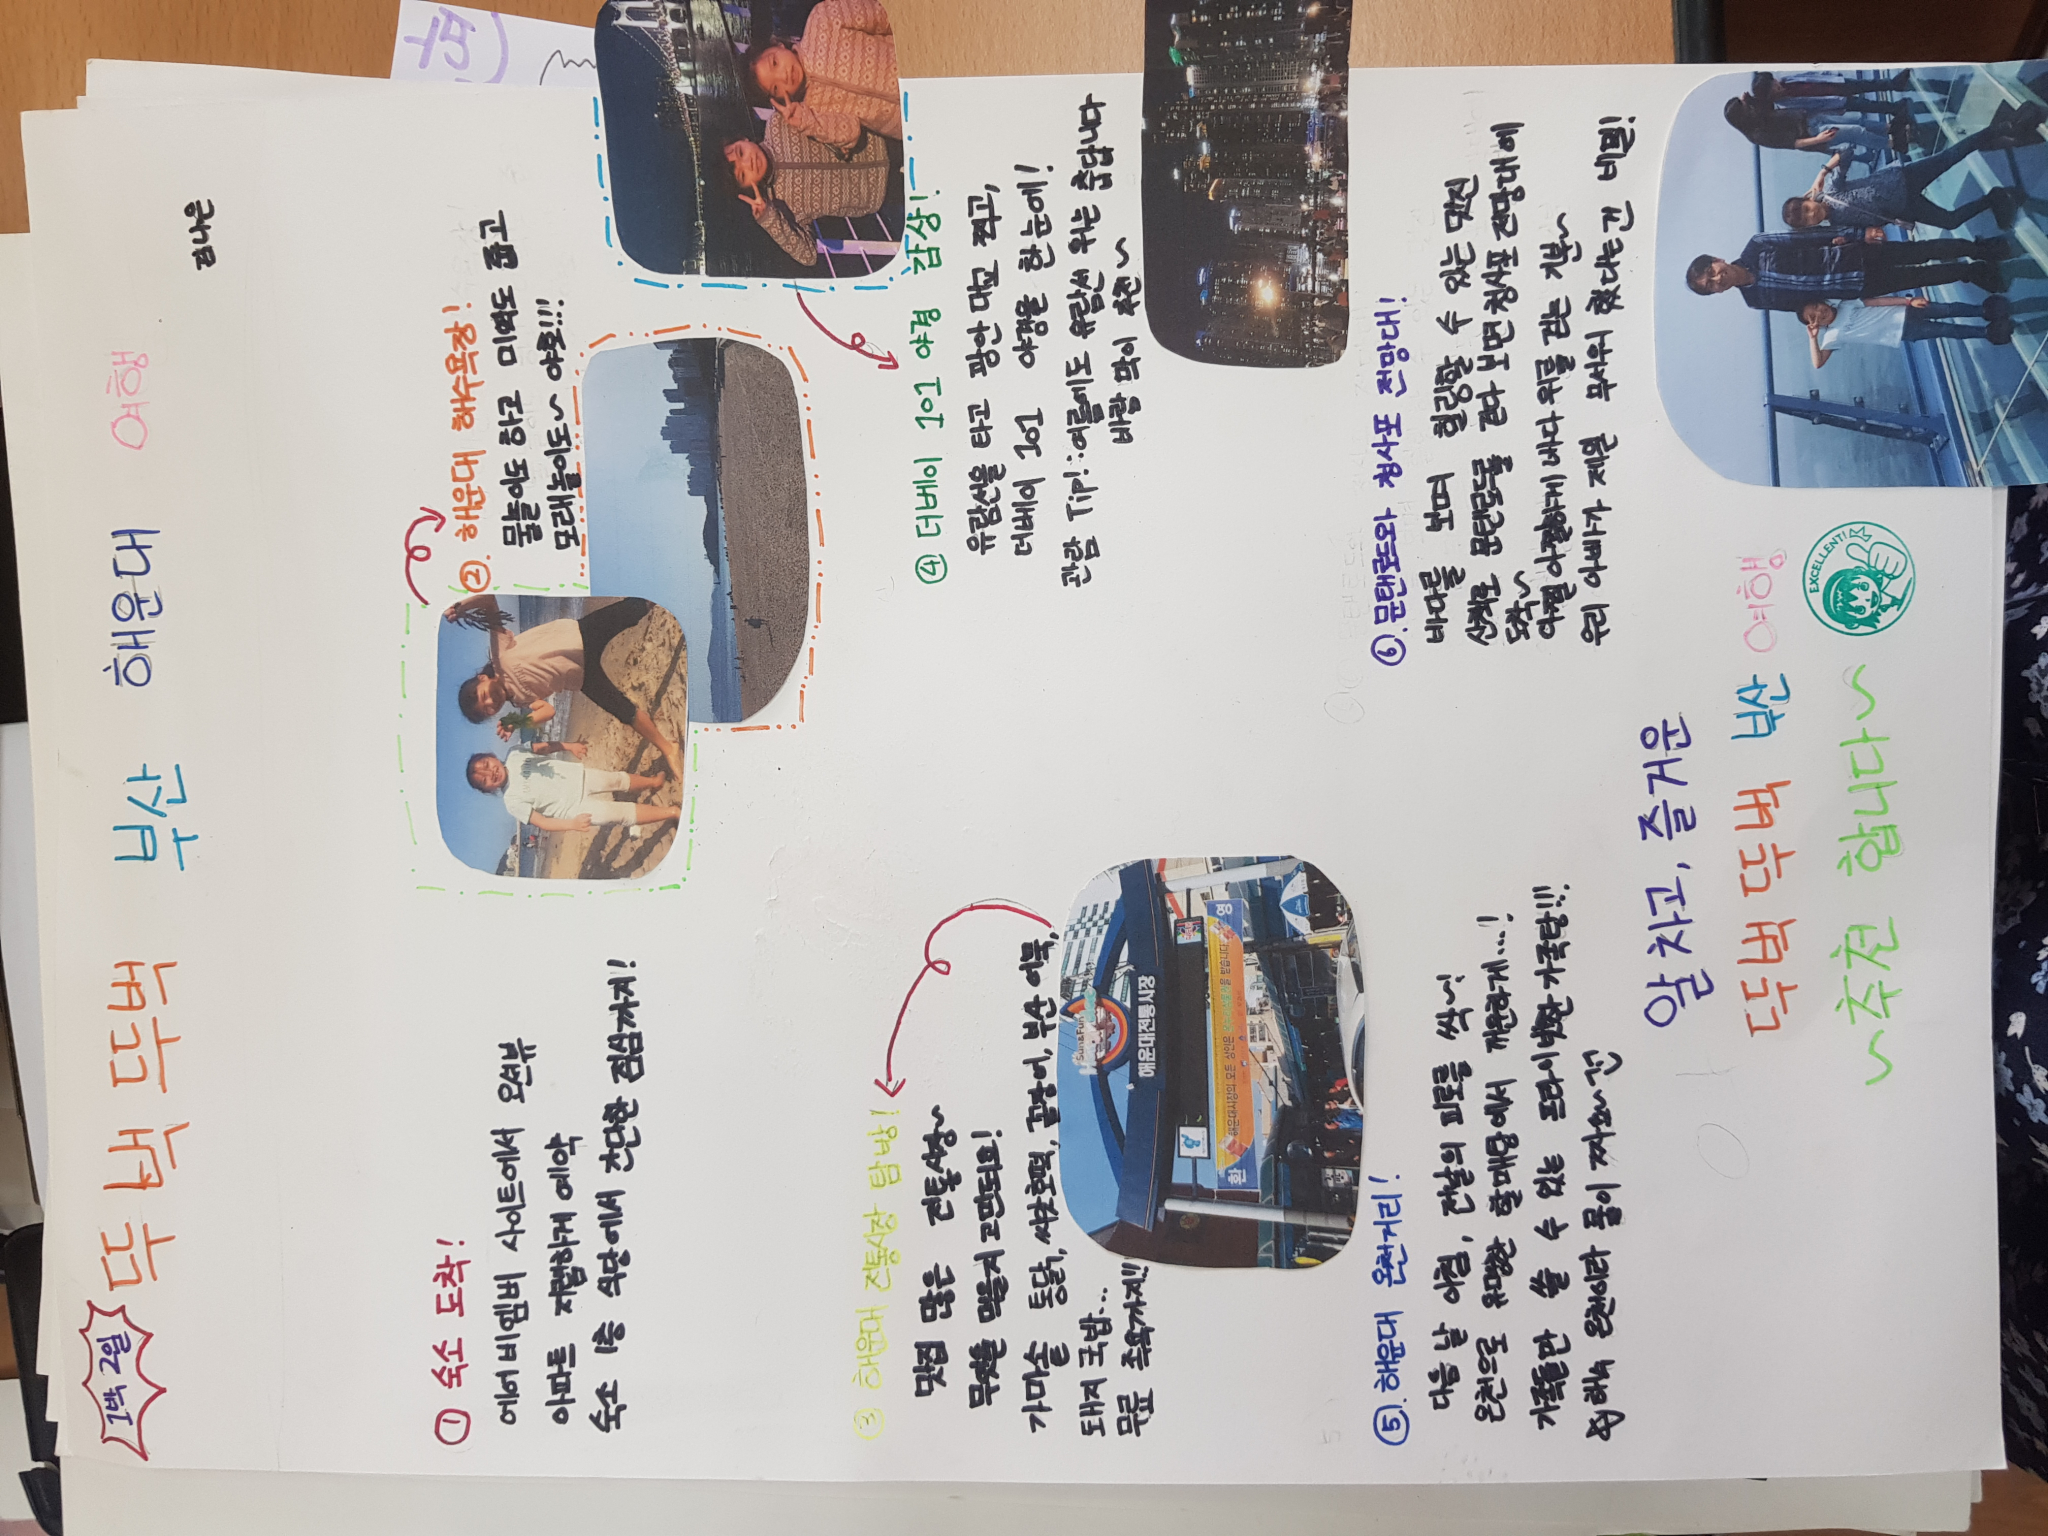 1박 2일
뚜벅 뚜벅 부산 해운대 여행
김나은
① 숙소 도착!
에어비엠비 사이트에서 오션뷰
아파트 저렴하게 예약
숙소 1층 식당에서 간단한 점심까지!
②. 해운대 해수욕장!
물놀이도 하고 미역도 줍고
모래놀이도~ 야호!!!
③ 해운대 전통시장 탐방!
맛집 많은 전통시장~
무엇을 먹을지 고민되요!
가마솥 통닭, 씨앗호떡, 곰장어, 부산 어묵,
돼지 국밥...
무료 족욕까지!!
Sun&Fun
해운대전통시장
해운대시장의 모든 상인은
을 받습니다
환
영
④ 더베이 101 야경 감상!
유람선을 타고 광안 대교 찍고,
더베이 101 야경을 한 눈에!
관람 Tip!:여름에도 유람선 위는 춥답니다
바람 막이 추천~
⑤. 해운대 온천거리!
다음 날 아침, 전날의 피로를 싹~!
온천으로 유명한 할매탕에서 개운하게...!
가족들만 쓸 수 있는 프라이빗한 가족탕!!!
해수 온천이라 물이 짜요~
⑥. 문탠로드와 청사포 전망대!
바다를 보며 힐링할 수 있는 멋진
산책로 문탠로드를 걷다 보면 청사포 전망대에
도착~
아찔아찔하게 바다 위를 걷는 기분~
우리 아빠가 제일 무서워 했다는건 비밀!
알차고, 즐거운
뚜벅 뚜벅 부산 여행
~추천 합니다~
EXCELLENT!